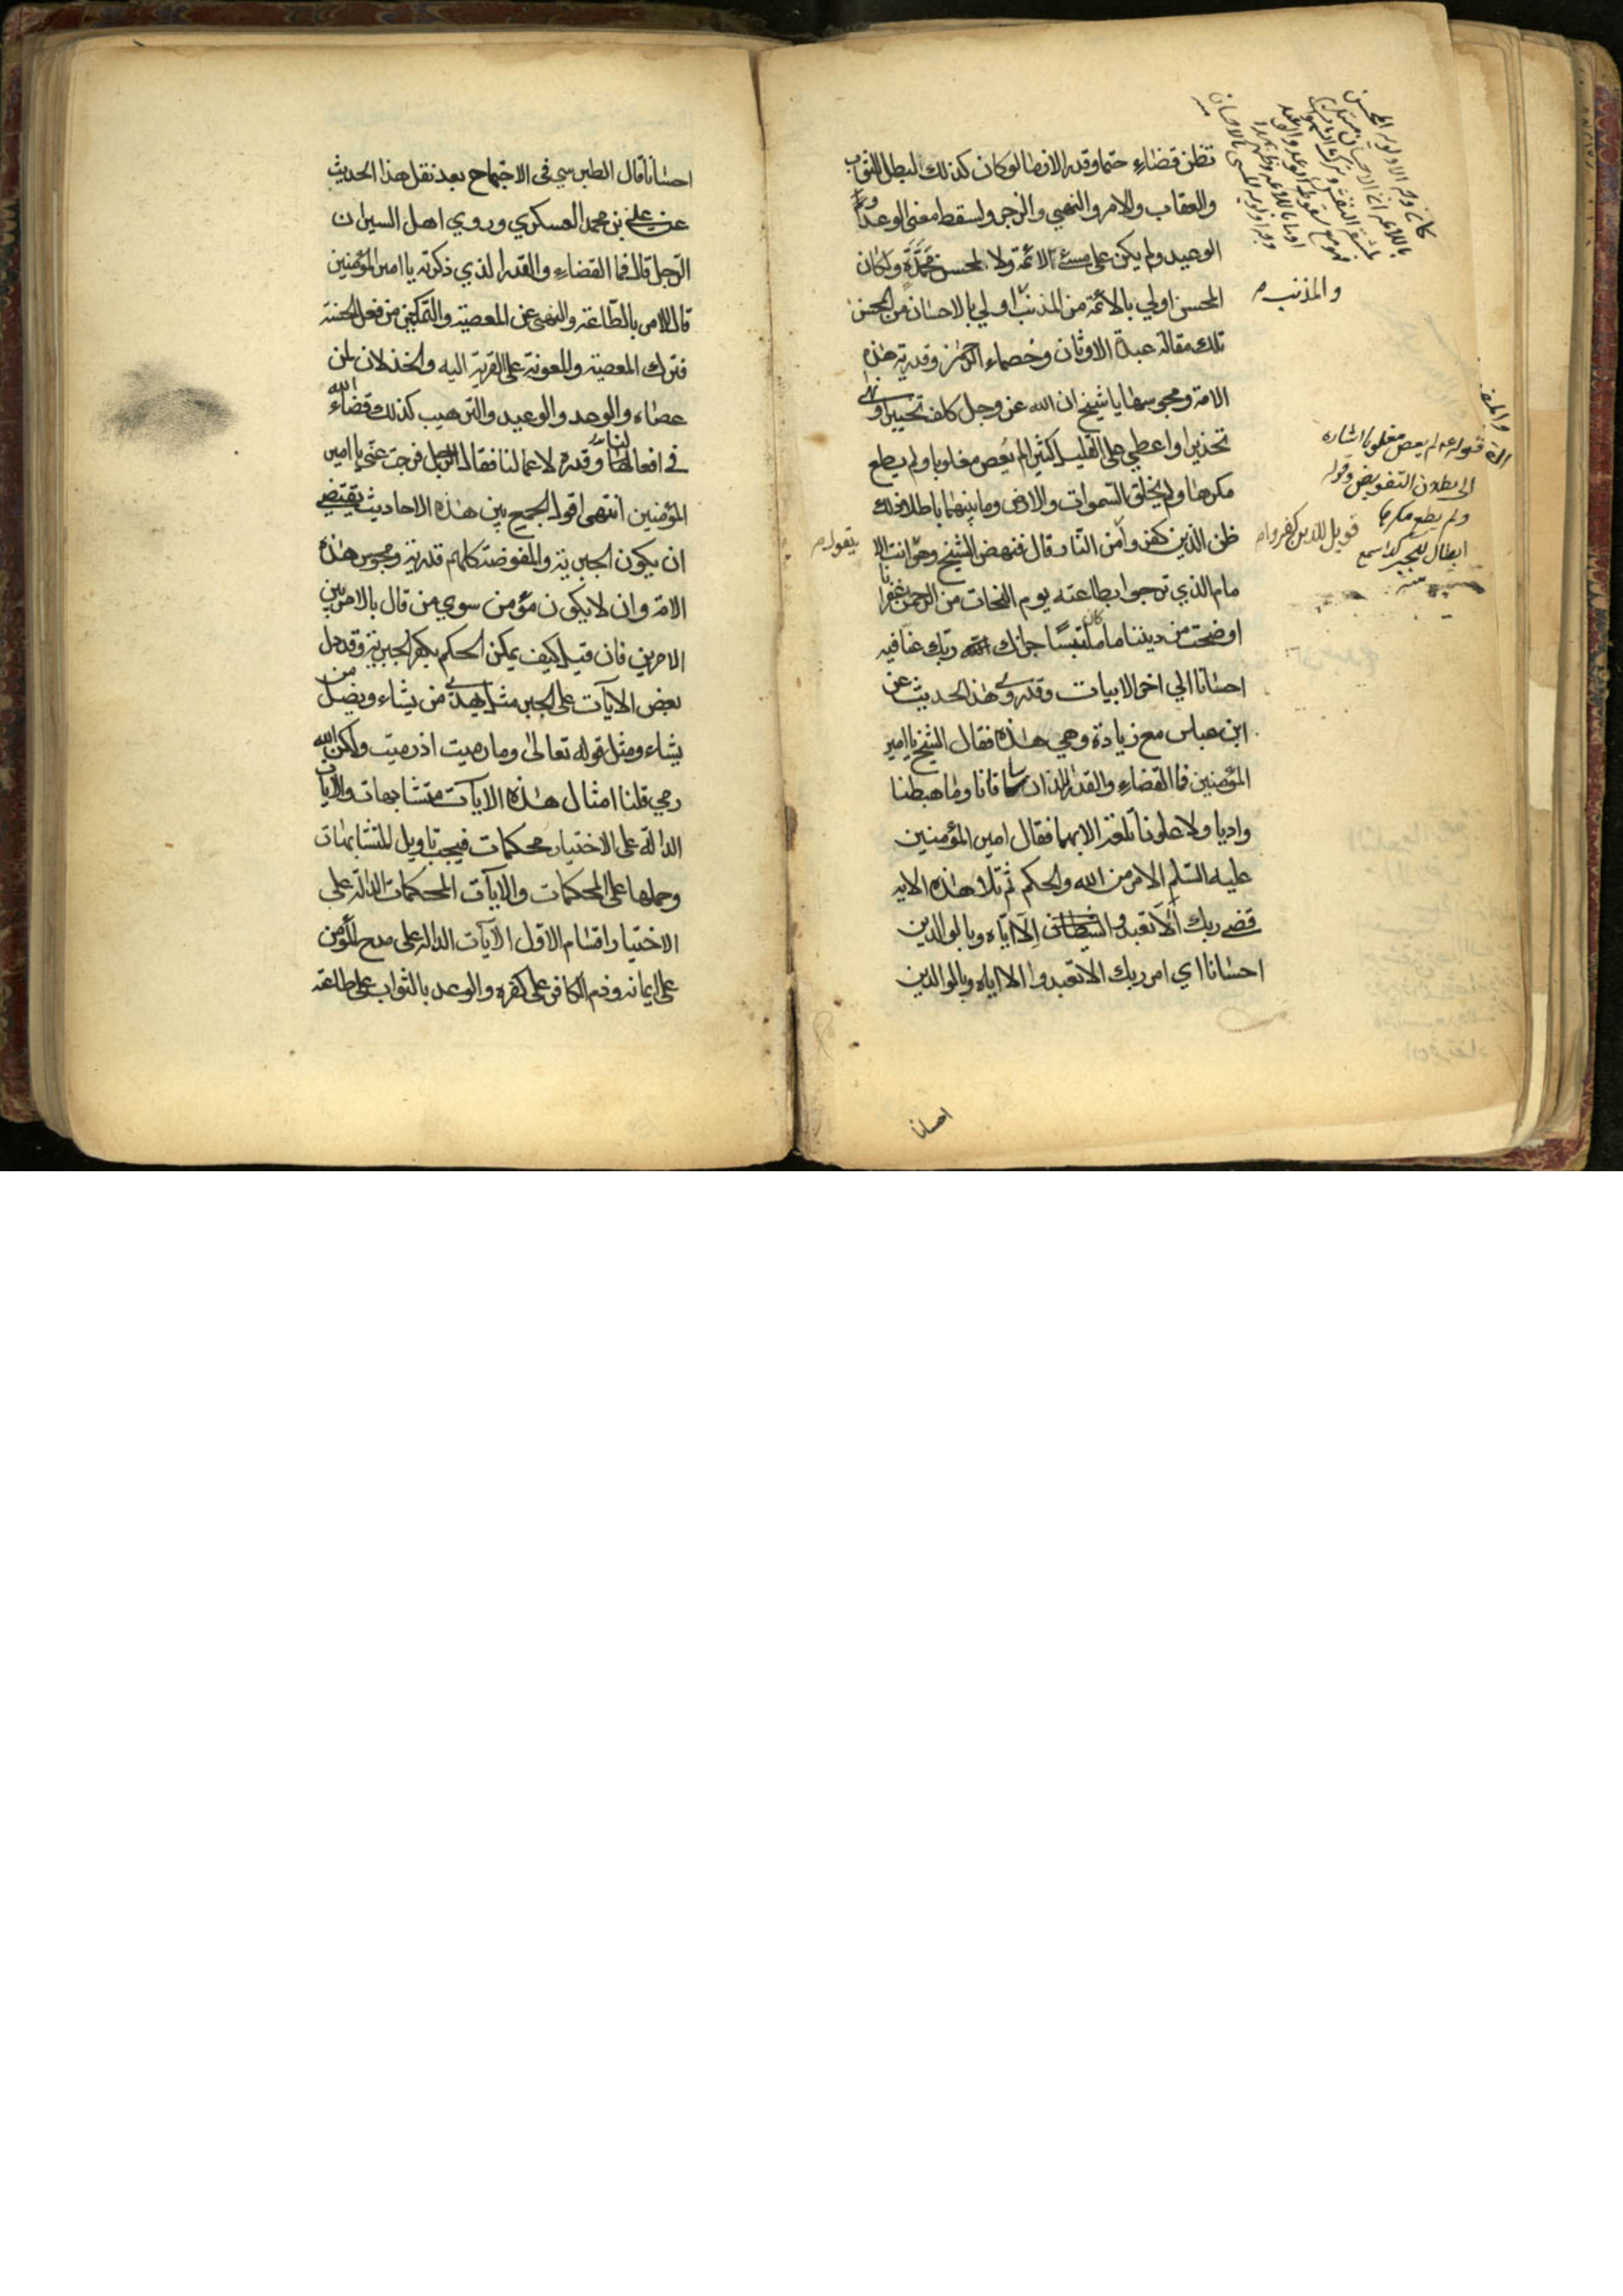 تظن قضاء حتما وقدرا لازما لو كان كذلك لبطل الثواب
والعقاب والامر والنهي والزجر ولسقط معنى الوعد و
الوعيد ولم يكن على مسئ لائمة ولا لمحسن محمدة ولكان
المحسن اولي بالائمة من المذنب اولي بالاحسان من المحسن
والمذنب
تلك مقالة عبدة الاوثان وخصماء الرحمن وقدرية هذه
الامة ومجوسها يا شيخ ان الله عز وجل كلف تخييرا ونهى
تحذيرا واعطي على القليل كثيرا لم يعص مغلوبا ولم يطع
مكرها ولم يخلق السموات والارض وما بينهما باطلا ذلك
ظن الذين كفروا من النار قال فنهض الشيخ وهو انت الا
فويل للذين كفروا
يقول
مام الذي نرجوا بطاعته يوم النجات من الرحمن غفرانا
اوضحت من ديننا ما كان ملتبسا جزاك ربك عنا فيه
احسانا الي اخر الابيات وقد روي هذا الحديث عن
ابن عباس مع زيادة وهي هذه فقال الشيخ يا امير
المؤمنين فما القضاء والقدر اللذان ساقانا وما هبطنا
واديا ولا علونا تلعة الا بهما فقال امير المؤمنين
عليه السلم الامر من الله والحكم ثم تلا هذه الايه
قضى ربك الا تعبدوا الا اياه وبالوالدين
احسانا اي امر ربك الا تعبدوا الا اياه وبالوالدين
احسانا
قوله لم يعص مغلوبا اشاره
الى بطلان التفويض وقوله
ولم يطع مكرها
ابطال للجبر
احسانا قال الطبرسي في الاحتجاج بعد نقل هذا الحديث
عن علي بن محمد العسكري وروي اهل السير ان
الرجل قال فما القضاء والقدر الذي ذكرته يا امير المؤمنين
قال الامر بالطاعة والنهي عن المعصية والتمكين من فعل الحسنة
فترك المعصية والمعونة على القربة اليه والخذلان لمن
عصاه والوعد والوعيد والترهيب كذلك قضاء الله
في افعالنا وقدره لاعمالنا فقال الرجل فرجت عني يا امير
المؤمنين انتهى اقول الجمع بين هذه الاحاديث يقتضي
ان يكون الجبرية والمفوضة كلهم قدرية ومجوس هذه
الامة وان لا يكون مؤمن سوي من قال بالامر بين
الامرين فان قيل كيف يمكن الحكم بكفر الجبرية وقد دل
بعض الايات على الجبر مثل يهدي من يشاء ويضل من
يشاء ومثل قوله تعالى وما رميت اذ رميت ولكن الله
رمي قلنا امثال هذه الايات متشابهات والايات
الدالة على الاختيار محكمات فيجب تاويل المتشابهات
وحملها على المحكمات والايات المحكمات الدالة على
الاختيار اقسام الاول الايات الدالة على مدح المؤمن
على ايمانه وذم الكافر على كفره والوعد بالثواب على طاعته